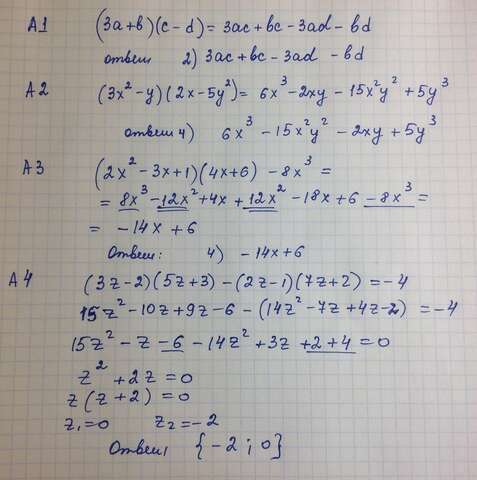 A1 (3a+b)(c-d)= 3ac+bc-3ad-bd
ответ 2) 3ac+bc-3ad -bd
A2 (3x²-y)(2x-5y²)= 6x³-2xy-15x²y²+5y³
ответ 4) 6x³-15x²y²-2xy+5y³
A3 (2x²-3x+1)(4x+6) -8x³ =
= 8x³-12x²+4x+12x²-18x+6-8x³=
= -14x+6
Ответ: 4) -14x+6
A4 (3z-2)(5z+3)-(2z-1)(7z+2)=-4
15z²-10z+9z-6-(14z²-7z+4z-2)=-4
15z²-z-6-14z²+3z+2+4=0
z²+2z=0
z(z+2)=0
z₁=0 z₂=-2
Ответ: {-2;0}